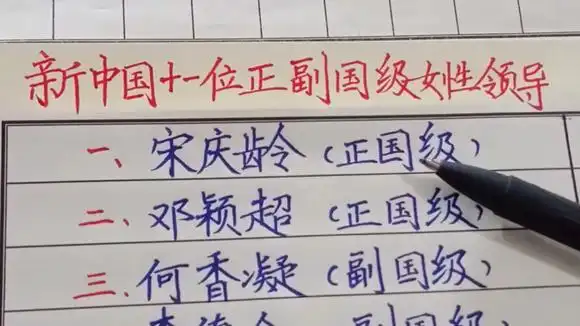 新中国十一位正副国级女性领导
一、宋庆龄(正国级)
二、邓颖超(正国级)
三、何香凝(副国级)